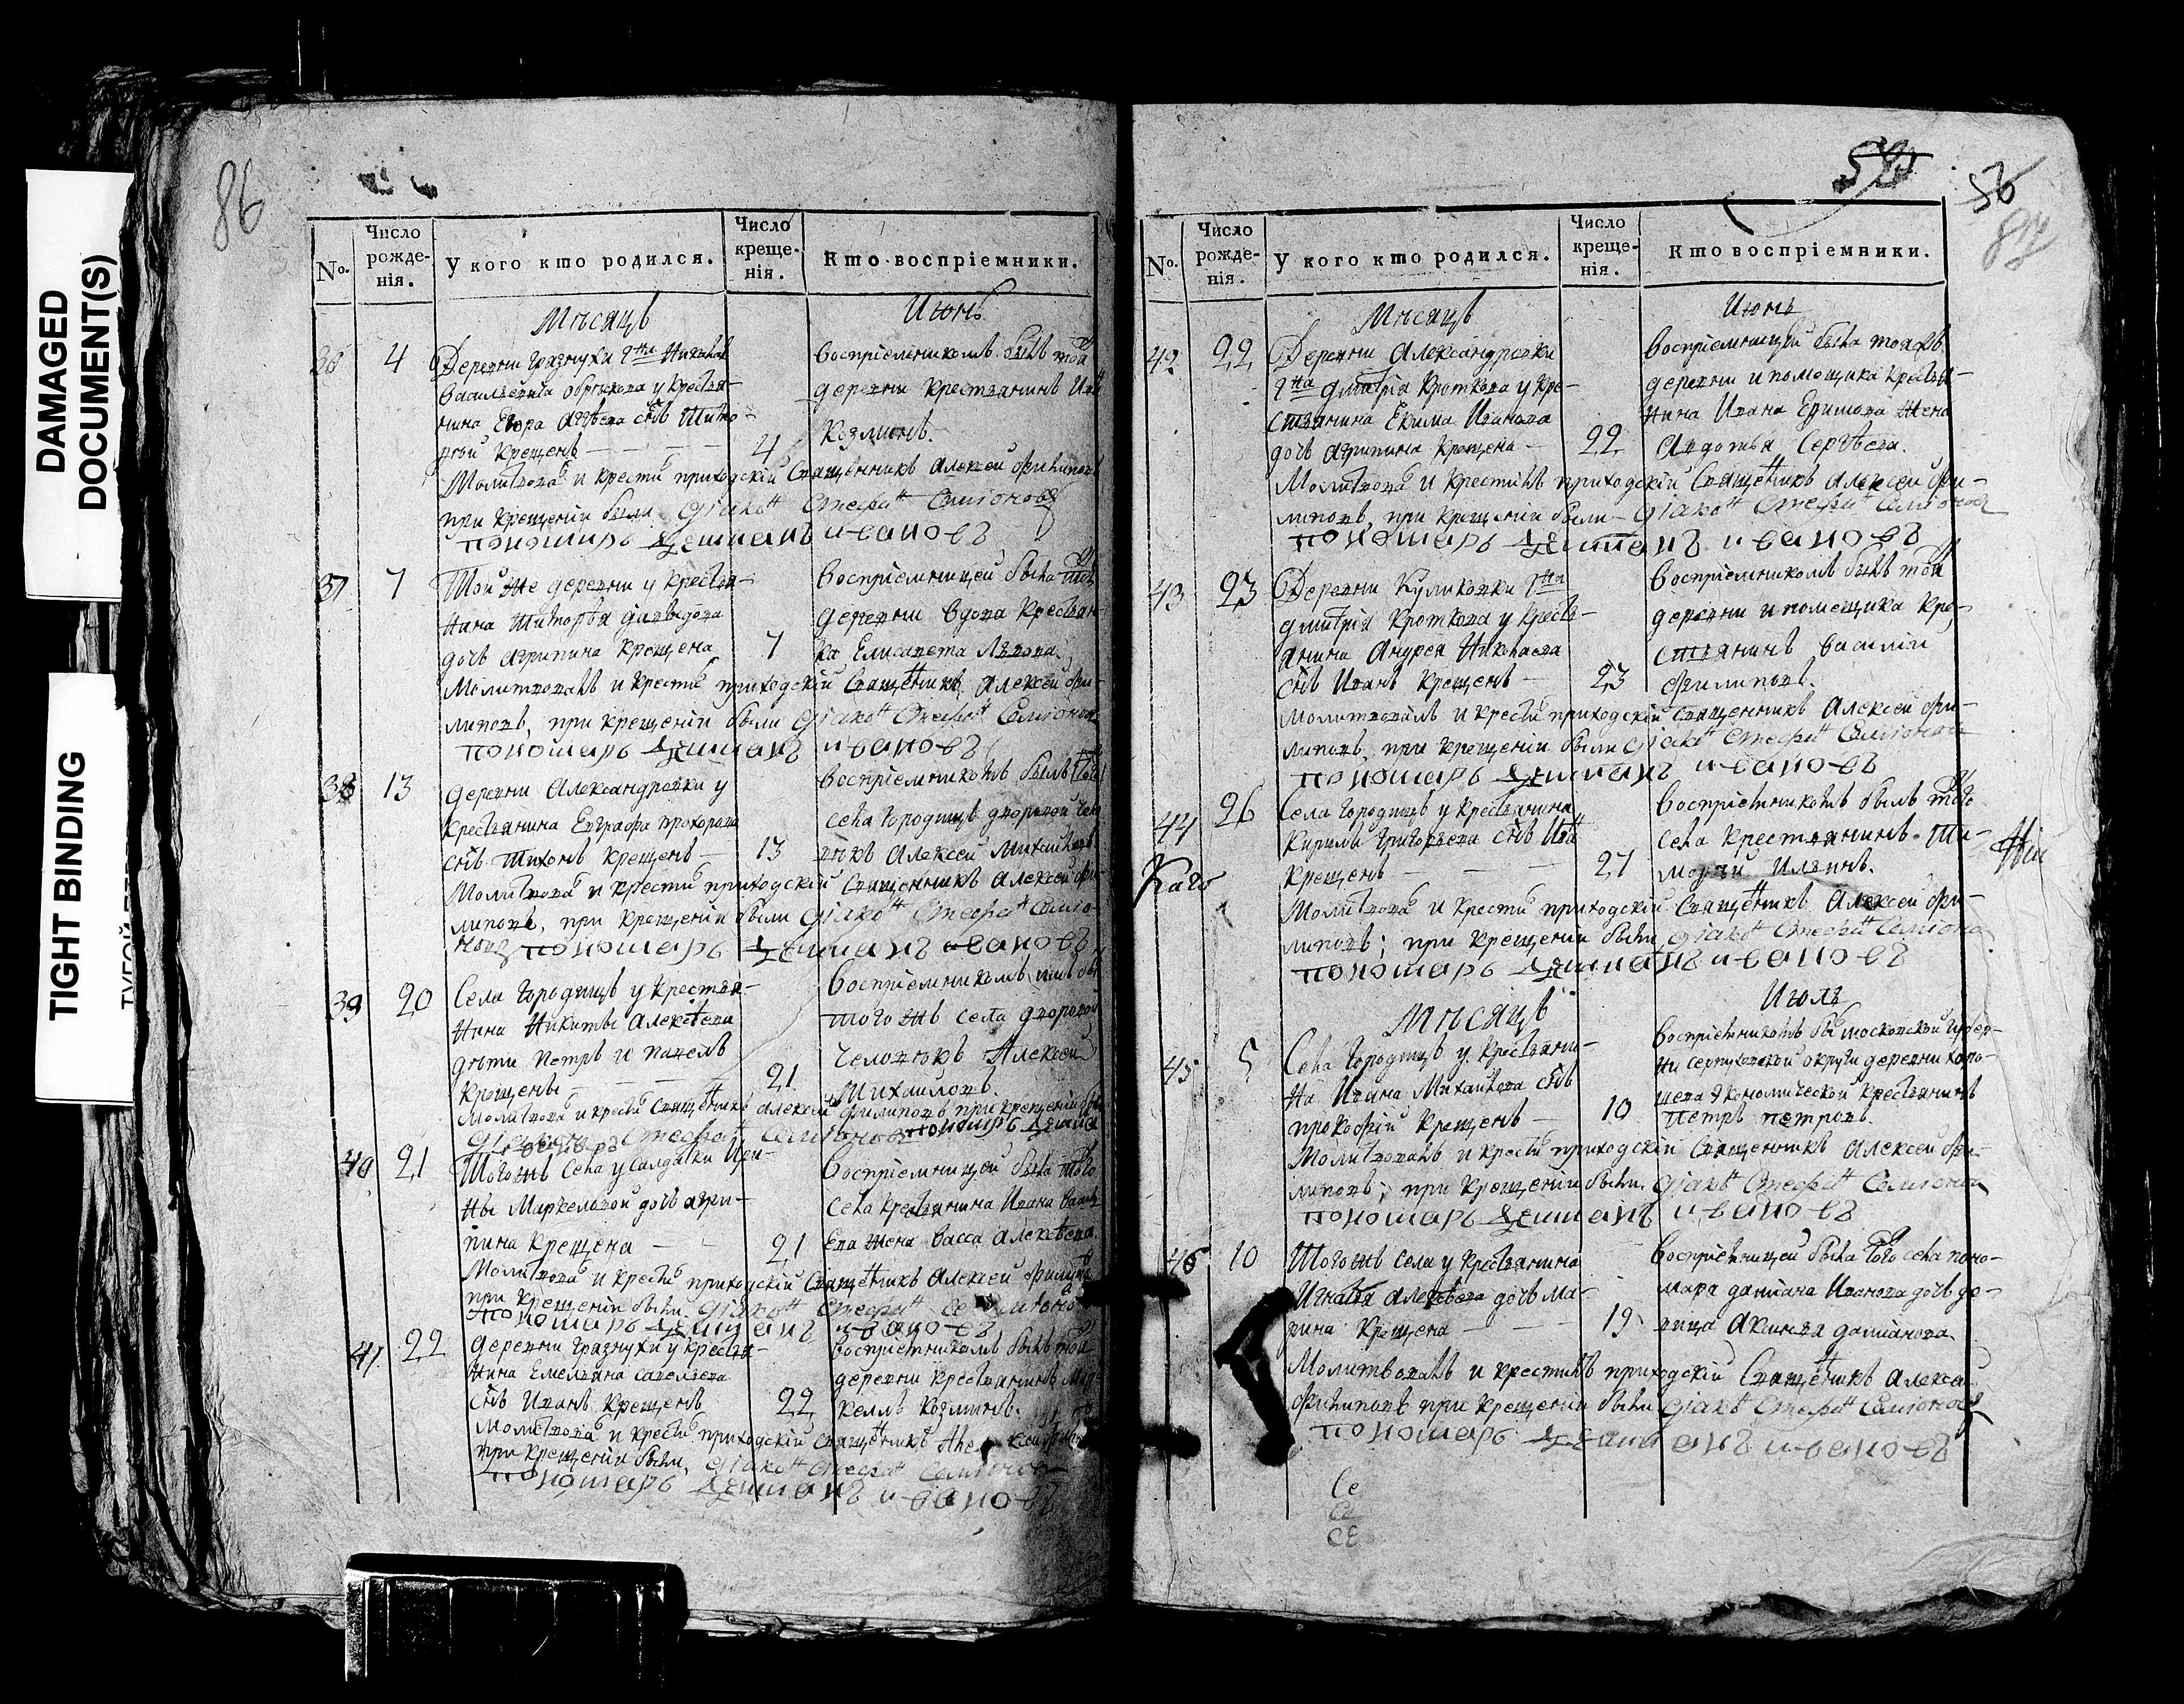 DAMAGED
DOCUMENT(S)
TIGHT BINDING
86
No.
Число рожденія.
У кого кто родился.
Число крещенія.
Кто воспріемники.
Мѣсяцъ
Июнь
36
4
Деревни Грязнухи гна
Васильевича у крестья-
нина Егора снъ Тимо-
фей крещенъ
4
воспріемникомъ былъ той
деревни крестьянинъ
Козминъ.
Молитвовал и крестил приходскій священникъ Алексей Филиповъ
при крещеніи были діакон Стефан Симіоновъ
пономарь Дамианъ Ивановъ
37
7
Той же деревни у крестья-
нина Тимофея Давыдова
дочь Агрипина крещена
7
воспріемницей была той
деревни вдова крестьян-
ка Елисавета
Молитвовалъ и крестил приходскій священникъ Алексей Фи-
липовъ, при крещеніи были діакон Стефан Симіонов
пономарь Дамианъ Ивановъ
38
13
деревни Александровки у
крестьянина Евграфа Прохорова
снъ Тихонъ крещенъ
13
воспріемникомъ былъ того
села Городищъ дворовой чело
вѣкъ Алексей Михайловъ
Молитвовал и крестил приходскій священникъ Алексей Фи-
липовъ, при крещеніи были діакон Стефан Симіо-
новъ пономарь Дамианъ Ивановъ
39
20
Села Городищъ у крестья-
нина Никиты Алексѣева
дѣти Петръ и Павелъ
крещены
21
воспріемникомъ
того жъ села дворовой
человѣкъ Алексей
Михайловъ.
Молитвовал и крестил священникъ Алексей Филиповъ при крещеніи были
діакон Стефан Симіонов пономарь Дамиан
Ивановъ
40
21
Того жъ села у салдатки Ири-
ны Маркеловой дочь Агри-
пина крещена
21
воспріемницей была того
села крестьянина Ивана Василь
ева жена Васса Алексѣева.
Молитвовал и крестил приходскій священникъ Алексей Филипов
при крещеніи были діакон Стефан Семионов
пономарь Дамианъ Ивановъ
41
22
деревни Грязнухи у крестья-
нина Емельяна Савельева
снъ Иванъ крещенъ
22
воспріемникомъ былъ той
деревни крестьянинъ Мар
келлъ Козминъ.
Молитвовал и крестил приходскій священникъ Алексей
при крещеніи были, діакон Стефан Симіонов
пономарь Дамианъ Ивановъ
56
No.
Число рожденія.
У кого кто родился.
Число крещенія.
Кто воспріемники.
Мѣсяцъ
Июнь
42
22
Деревни Александровки
гна Дмитрія Кроткова у кре-
стьянина Екима Иванова
дочь Агрипина крещена
22
воспріемницей была той жъ
деревни и помещика крестья-
нина Ивана Ефимова жена
Авдотья Сергѣева.
Молитвовал и крестилъ приходскій священникъ Алексей Фи-
липовъ, при крещеніи были діакон Стефан Симіонов
пономарь Дамианъ Ивановъ
43
23
Деревни Куликовки гна
Дмитрія Кроткова у кресть-
янина Андрея Николаева
снъ Иванъ крещенъ
23
воспріемникомъ былъ той
деревни и помещика кре-
стьянинъ Василій
Филиповъ.
молитвовалъ и крестил приходскій священникъ Алексей Фи-
липовъ, при крещеніи были діакон Стефан Симіонов
пономарь Дамианъ Ивановъ
44
26
Села Городищъ у крестьянина
Кирилы Григорьева снъ Иван
крещенъ
27
воспріемникомъ былъ того
села крестьянинъ Ти-
мофей Ильинъ.
Молитвовал и крестил приходскій священникъ Алексей Фи-
липовъ; при крещеніи были, діакон Стефан Симіонов
пономарь Дамианъ Ивановъ
Мѣсяцъ
Июль
45
5
Села Городищъ у крестьяни-
на Ивана Михайлова снъ
Прокофій крещенъ
10
воспріемникомъ был московской губер-
ни серпуховской округи деревни
экономической крестьянинъ
Петръ Петровъ.
Молитвовалъ и крестил приходскій священникъ Алексей Фи-
липовъ; при крещеніи были, діакон Стефан Симіонов
пономарь Дамианъ Ивановъ
46
10
Того жъ села у крестьянина
Игнатья Алексѣева дочь Ма-
рина крещена
19
воспріемницей была того села поно-
маря Дамиана Иванова дочь де-
вица Акинфа Дамианова.
Молитвовалъ и крестилъ приходскій священникъ Алексей
Филиповъ при крещеніи были діакон Стефан Симіоновъ
пономарь Дамианъ Ивановъ
Се
Се
СЕ